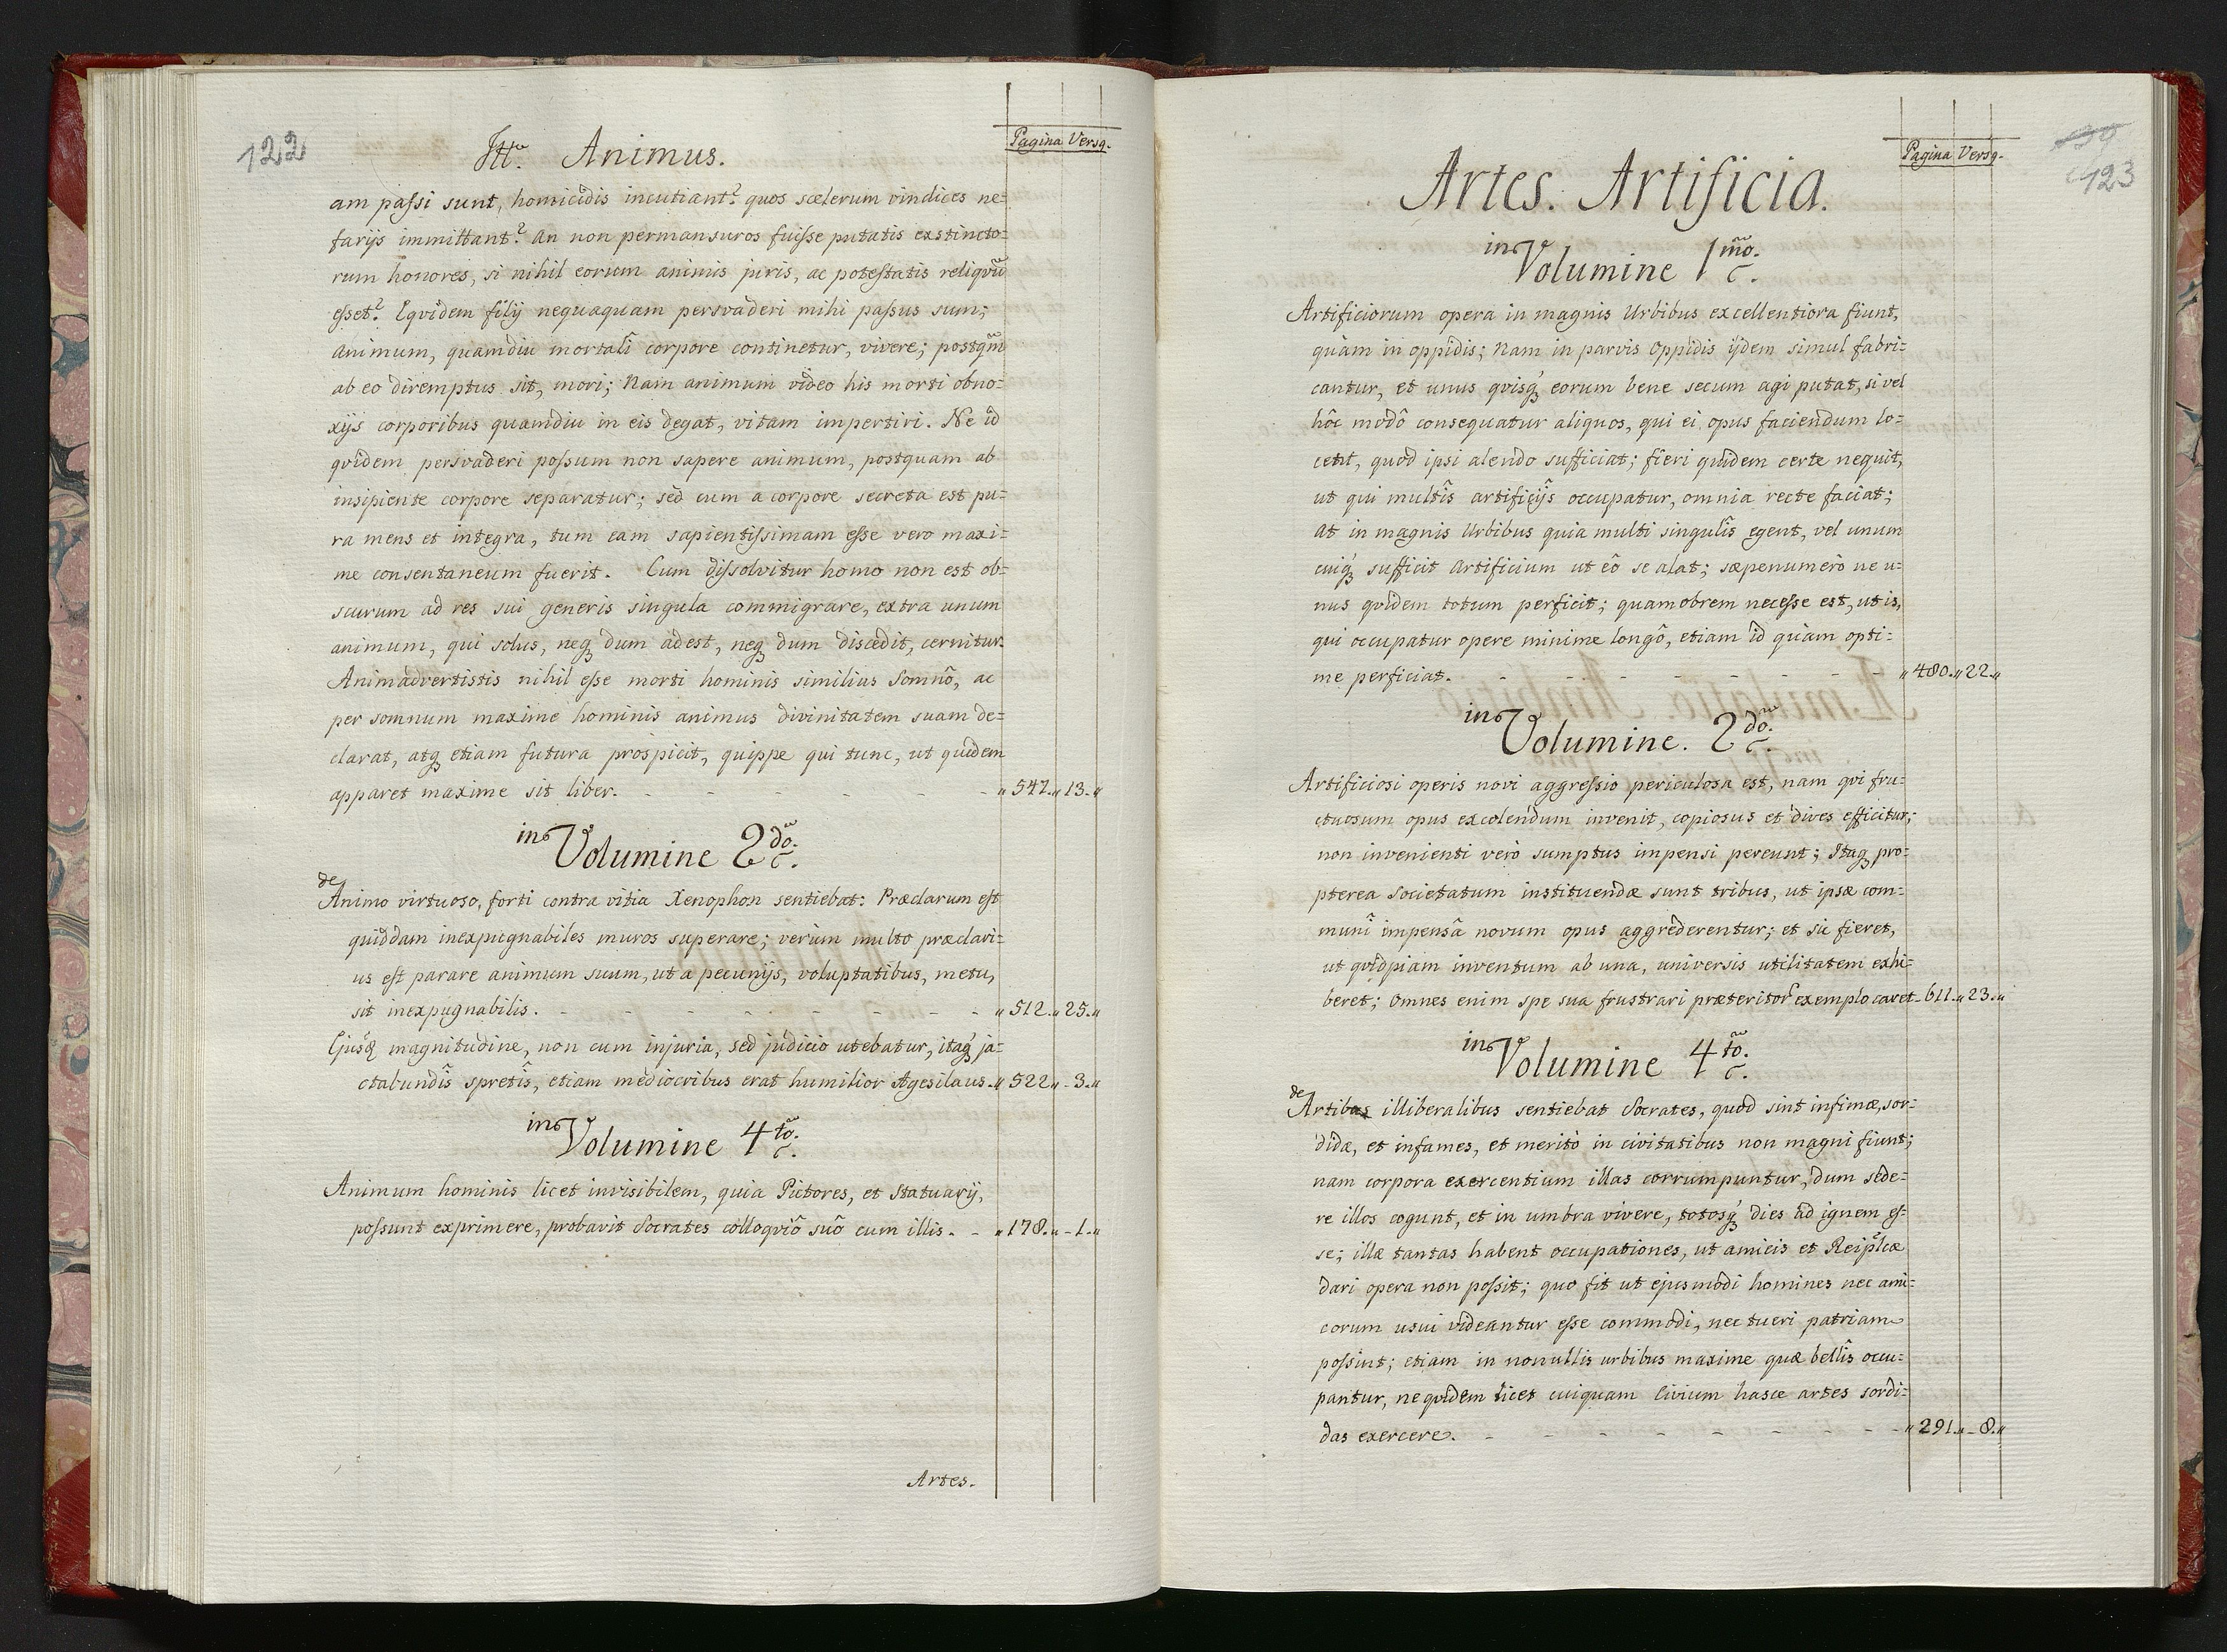 122
Itt. Animus.
Pagina Versq.
am passi sunt, homicidis incutiant? quos scelerum vindices ne=
farijs immittant? An non permansuros fuisse putatis exstincto=
rum honores, si nihil eorum animis juris, ac potestatis reliqvũ
esset? Eqvidem filij nequaquam persvaderi mihi passus sum;
animum, quamdiu mortalî corpore continetur, vivere; postqm̃
ab eo diremptus sit, mori; Nam animum video his morti obno=
xijs corporibus quamdiu in eis degat, vitam impertiri. Ne id
qvidem persvaderi possum non sapere animum, postquam ab
insipiente corpore separatur; sed cum a corpore secreta est pu=
ra mens et integra, tum eam sapientissimam esse vero maxi=
me consentaneum fuerit. Cum dissolvitur homo non est ob=
scurum ad res sui generis singula commigrare, extra unum
animum, qui solus, neq; dum adest, neq; dum discedit, cernitur.
Animadvertistis nihil esse morti hominis similius Somnô, ac
per somnum maxime hominis animus divinitatem suam de=
clarat, atq; etiam futura prospicit, quippe qui tunc, ut quidem
apparet maxime sit liber. - - - - - - „ 547. „ 13. „
in Volumine 2do.
de Animo virtuoso, forti contra vitia Xenophon sentiebat: Præclarum est
quiddam inexpugnabiles muros superare; verùm multo præclari=
us est parare animum suum, ut a pecunijs, voluptatibus, metu,
sit inexpugnabilis. - - - - - - - - „ 512. „ 25. „
Ejusq; magnitudine, non cum injuria, sed judicio utebatur, itaq; ja=
ctabundîs spretîs, etiam mediocribus erat humilior Agesilaus. „ 522 „ - 3. „
in Volumine 4to.
Animum hominis licet invisibilem, quia Pictores, et Statuarij,
possunt exprimere, probavit Socrates colloqviô suô cum illis. - - „ 178. „ - 1. „
Artes.
39
123
Pagina Versq.
Artes. Artificia.
in Volumine 1mo.
Artificiorum opera in magnis Urbibus excellentiora fiunt,
quàm in oppidis; Nam in parvis Oppidis ijdem simul fabri=
cantur, et unus qvisq; eorum bene secum agi putat, si vel
hôc modô consequatur aliquos, qui ei opus faciendum lo=
cent, quod ipsi alendo sufficiat; fieri quidem certe nequit,
ut qui multîs artificijs occupatur, omnia recte faciat;
at in magnis Urbibus quia multi singulîs egent, vel unum
cuiq; sufficit Artificium ut eô se alat; sæpenumerò ne u=
nus qvidem totum perficit; quamobrem necesse est, ut is,
qui occupatur opere minime longô, etiam id quàm opti=
me perficiat. - - - - - - - - „ 480. „ 22. „
in Volumine. 2do.
Artificiosi operis novi aggressio periculosa est, nam qvi fru=
ctuosum opus excolendum invenit, copiosus et dives efficitur;
non invenienti verò sumptus impensi pereunt; Itaq; pro=
pterea Societatum instituendæ sunt tribus, ut ipsæ com=
munî impensâ novum opus aggrederentur; et sic fieret,
ut qvidpiam inventum ab una, universis utilitatem exhi=
beret; Omnes enim spe sua frustrari præteritor exemplo caret - 611. „ 23. „
in Volumine 4to.
de Artibus illiberalibus sentiebat Socrates, quod sint infimæ, sor=
didæ, et infames, et meritò in civitatibus non magni fiunt;
nam corpora exercentium illas corrumpuntur, dum sede=
re illos cogunt, et in umbra vivere, totosq; dies ad ignem es=
se; illæ tantas habent occupationes, ut amicis et Reiplcæ
dari opera non possit; quo fit ut ejusmodi homines nec ami=
corum usui videantur esse commodi, nec tueri patriam
possint; etiam in nonullis urbibus maxime quæ bellis occu=
pantur, ne qvidem licet cuiquam Civium hasce artes sordi=
das exercere. - - - - - - - - „ 291. „ - 8. „